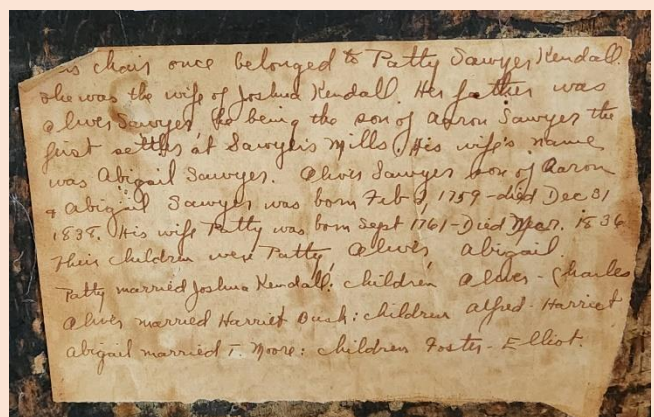 is chair once belonged to Patty Sawyer Kendall.
She was the wife of Joshua Kendall. Her father was
Oliver Sawyer, he being the son of Aaron Sawyer the
first settler at Sawyer's Mills. His wife's name
was Abigail Sawyer. Oliver Sawyer son of Aaron
& Abigail Sawyer was born Feb 3, 1759 - died Dec 31
1838. His wife Patty was born Sept 1761 - Died Mar. 1836
Their children were Patty, Oliver, Abigail.
Patty married Joshua Kendall: children Oliver - Charles
Oliver married Harriet Bush: children Alfred - Harriet
Abigail married T. Moore: children Foster - Elliot.